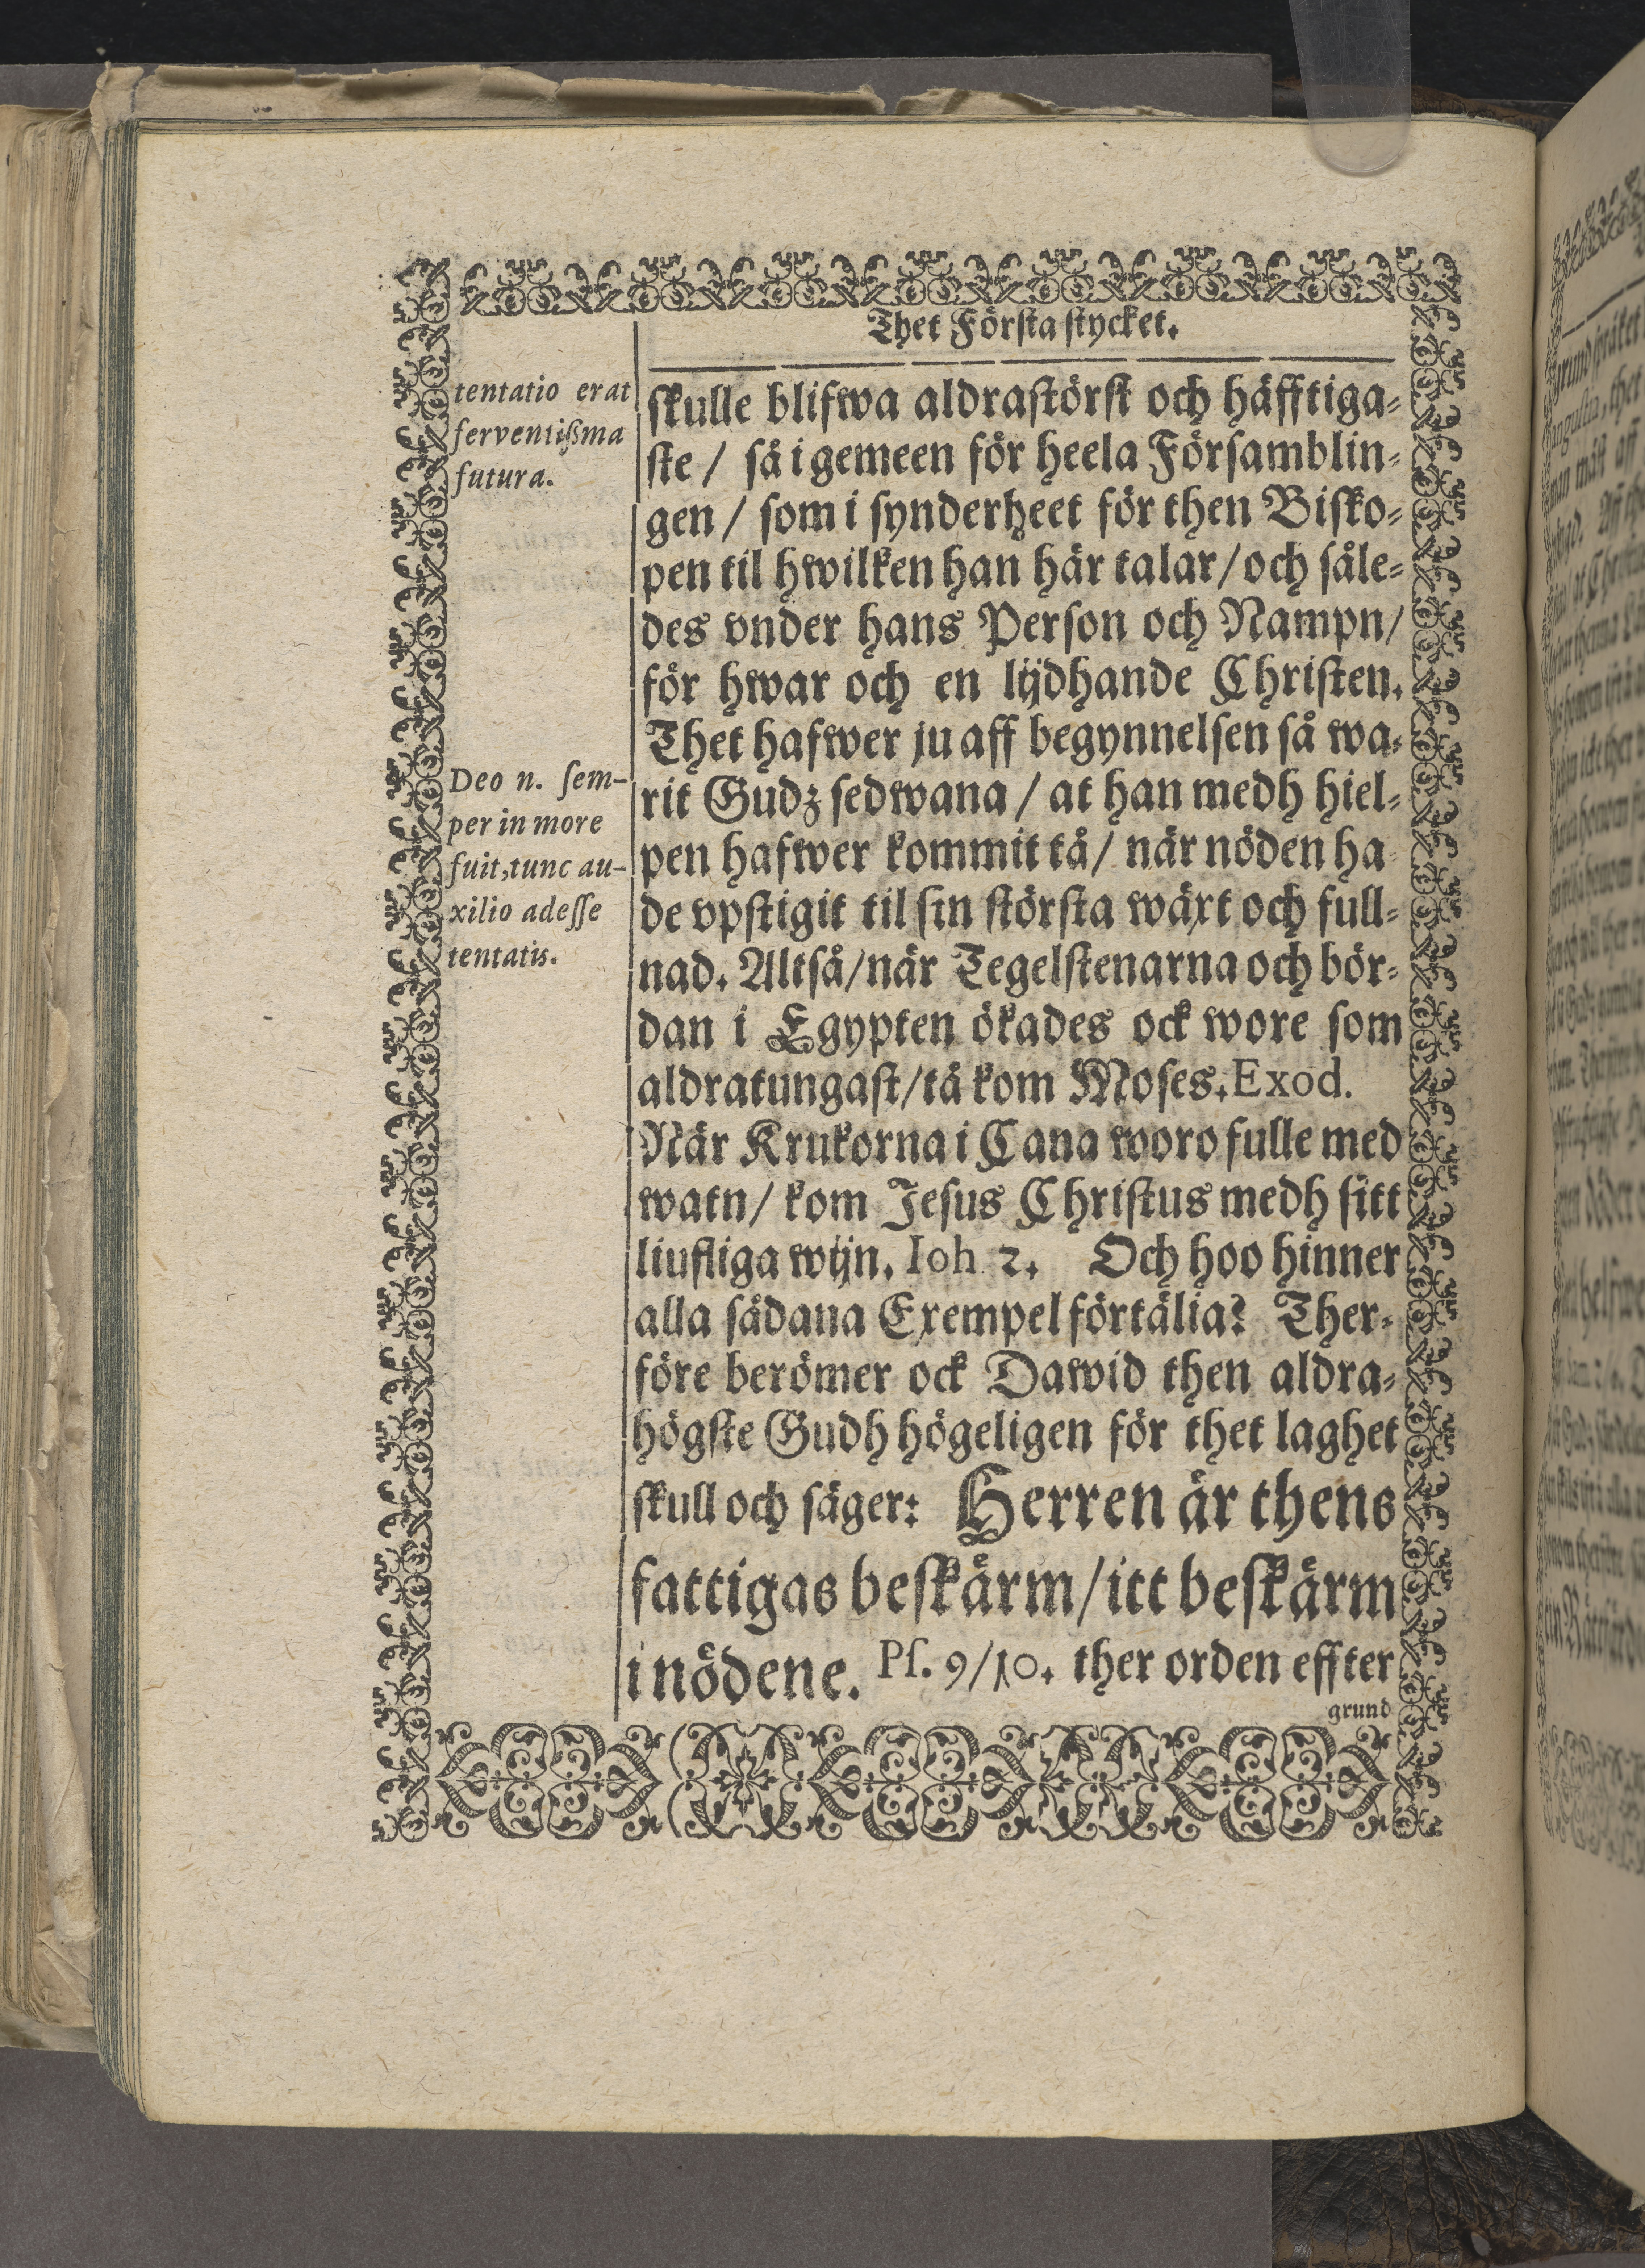 Thet Första stycket.
tentatio erat
ferventißma
futura.
skulle blifwa aldrastörst och häfftiga-
ste / så i gemeen för heela Församblin-
gen / som i synderheet för then Bisko-
pen til hwilken han här talar / och såle-
des vnder hans Person och Nampn /
för hwar och en lijdhande Christen.
Thet hafwer ju aff begynnelsen så wa-
rit Gudz sedwana / at han medh hiel-
pen hafwer kommit tå / när nöden ha-
de vpstigit til sin största wäxt och full-
nad. Altså / när Tegelstenarna och bör-
dan i Egypten ökades ock wore som
aldratungast / tå kom Moses. Exod.
När Krukorna i Cana woro fulle med
watn / kom Jesus Christus medh sitt
liufliga wijn. Ioh. 2. Och hoo hinner
alla sådana Exempel förtälia? Ther-
före berömer ock Dawid then aldra-
högste Gudh högeligen för thet laghet
skull och säger: Herren är thens
fattigas beskärm / itt beskärm
i nödene. Ps. 9/10. ther orden effter
grund
Deo n. ſem-
per in more
fuit, tunc au-
xilio adeſſe
tentatis.